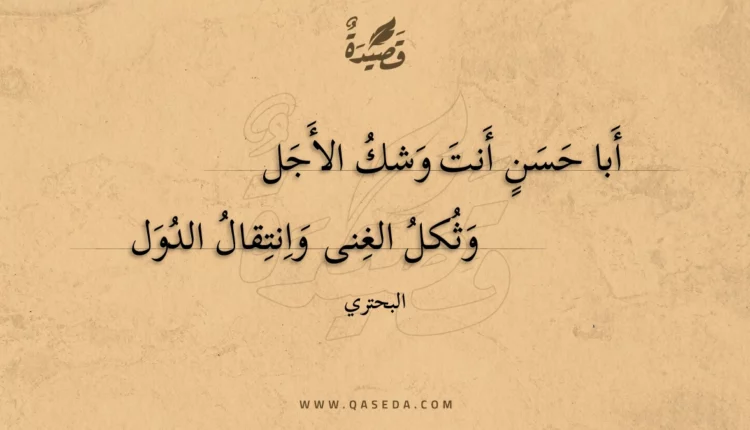 قَصِيْدَةٌ
أَبا حَسَنٍ أَنتَ وَشكُ الأَجَل
وَثُكلُ الغِنى وَاِنتِقالُ الدُوَل
البحتري
WWW.QASEDA.COM